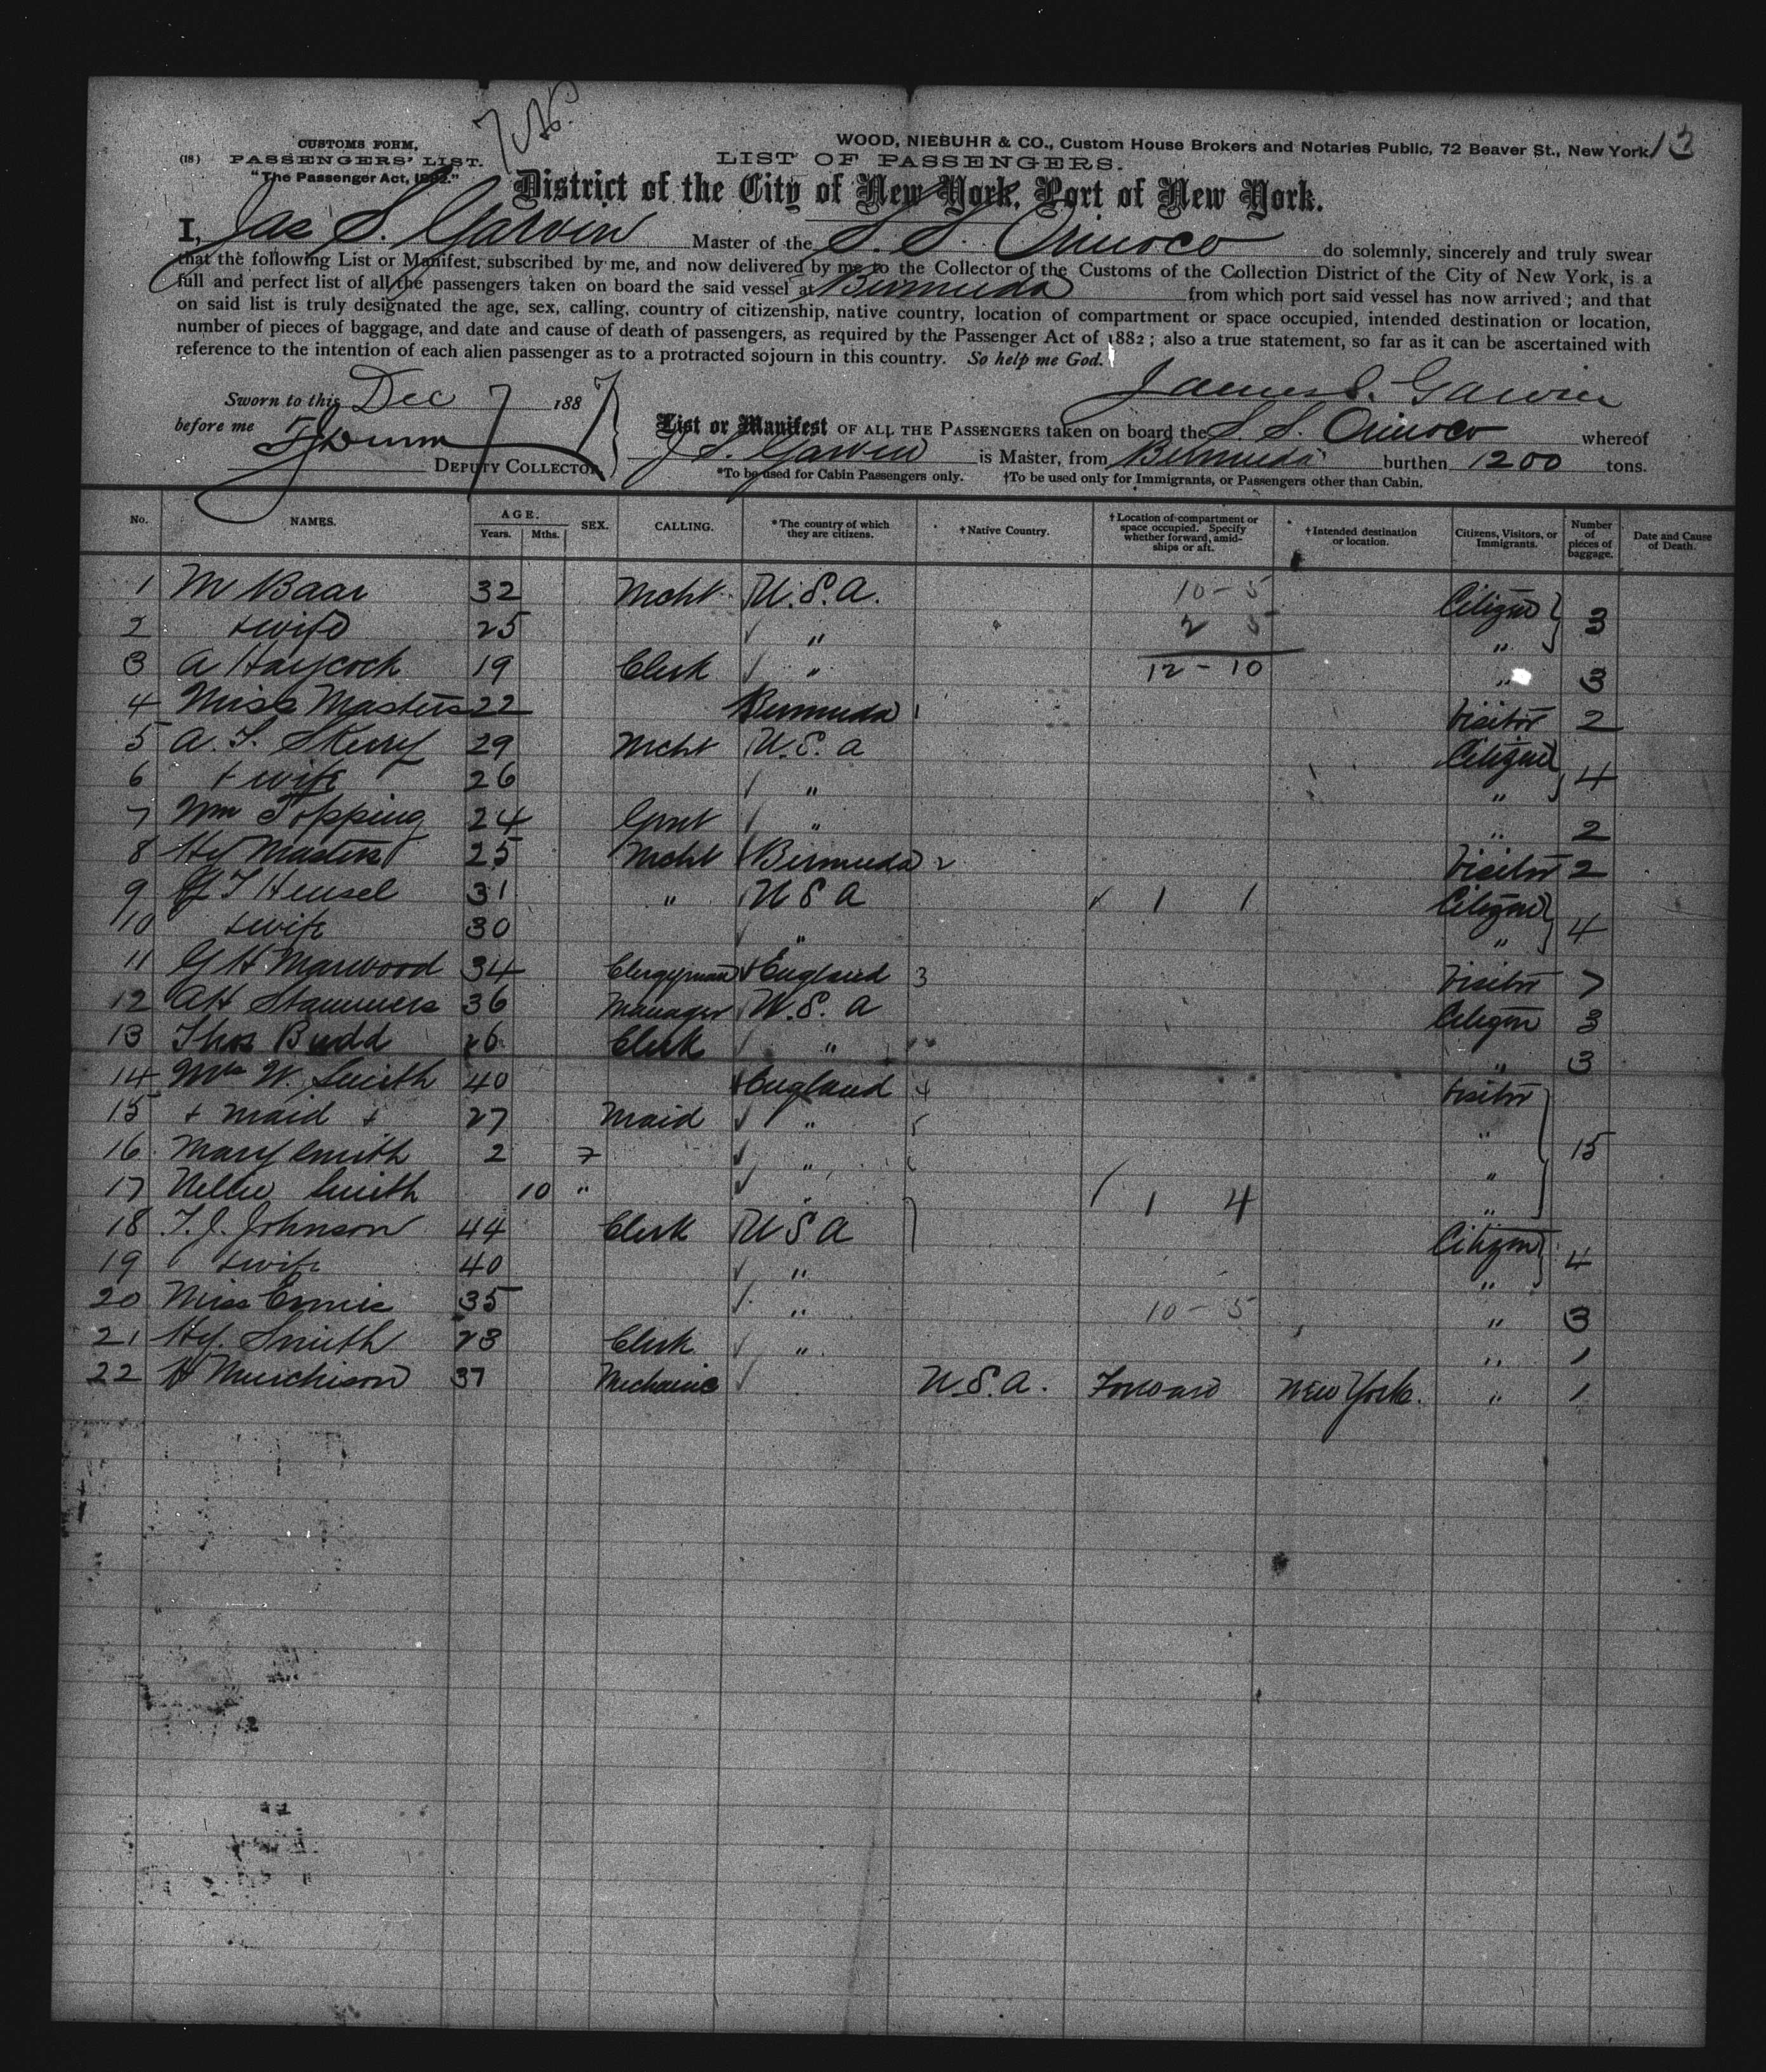 CUSTOMS FORM,
(18) PASSENGERS' LIST.
"The Passenger Act, 1882."
WOOD, NIEBUHR & CO., Custom House Brokers and Notaries Public, 72 Beaver St., New York
LIST OF PASSENGERS.
District of the City of New York, Port of New York.
I, Jas S. Garvin Master of the S. S. Orinoco do solemnly, sincerely and truly swear
that the following List or Manifest, subscribed by me, and now delivered by me to the Collector of the Customs of the Collection District of the City of New York, is a
full and perfect list of all the passengers taken on board the said vessel at Bermuda from which port said vessel has now arrived; and that
on said list is truly designated the age, sex, calling, country of citizenship, native country, location of compartment or space occupied, intended destination or location,
number of pieces of baggage, and date and cause of death of passengers, as required by the Passenger Act of 1882; also a true statement, so far as it can be ascertained with
reference to the intention of each alien passenger as to a protracted sojourn in this country. So help me God.
James S. Garvin
Sworn to this Dec 7 1887
before me
DEPUTY COLLECTOR.
List or Manifest OF ALL THE PASSENGERS taken on board the S. S. Orinoco whereof
J S. Garvin is Master, from Bermuda burthen 1200 tons.
*To be used for Cabin Passengers only. †To be used only for Immigrants, or Passengers other than Cabin.
No. NAMES. AGE. Years. Mths. SEX. CALLING. *The country of which they are citizens. †Native Country. †Location of compartment or space occupied. Specify whether forward, amidships or aft. †Intended destination or location. Citizens, Visitors, or Immigrants. Number of pieces of baggage. Date and Cause of Death.
1 M Baar 32 Mcht U.S.A. 10-5 Citizen
2 + wife 25 " 2 5 " 3
3 A Haycock 19 Clerk " 12-10 " 3
4 Miss Masters 22 Bermuda 1 Visitor 2
5 A. T. Skerry 29 Mcht U.S.A Citizen
6 + wife 26 " " 4
7 Wm Topping 24 " " 2
8 Hy Masters 25 Mcht Bermuda 2 Visitor 2
9 T Hensel 31 " U S A 1 1 Citizen
10 + wife 30 " " 4
11 G H Marwood 34 Clergyman England 3 Visitor 7
12 AH Stammers 36 Manager U.S.A Citizen 3
13 Thos Budd 26 Clerk " " 3
14 Mrs W. Smith 40 England 4 Visitor
15 + maid + 27 Maid " 5 "
16 Mary Smith 2 7 " 6 " 15
17 Nellie Smith 10 " " 1 4 "
18 T. J. Johnson 44 Clerk U S A Citizen
19 + wife 40 " " 4
20 Miss Ennis 35 " 10-5 " 3
21 Hy. Smith 23 Clerk " " 1
22 H Murchison 37 Mechanic U.S.A. Forward New York. " 1